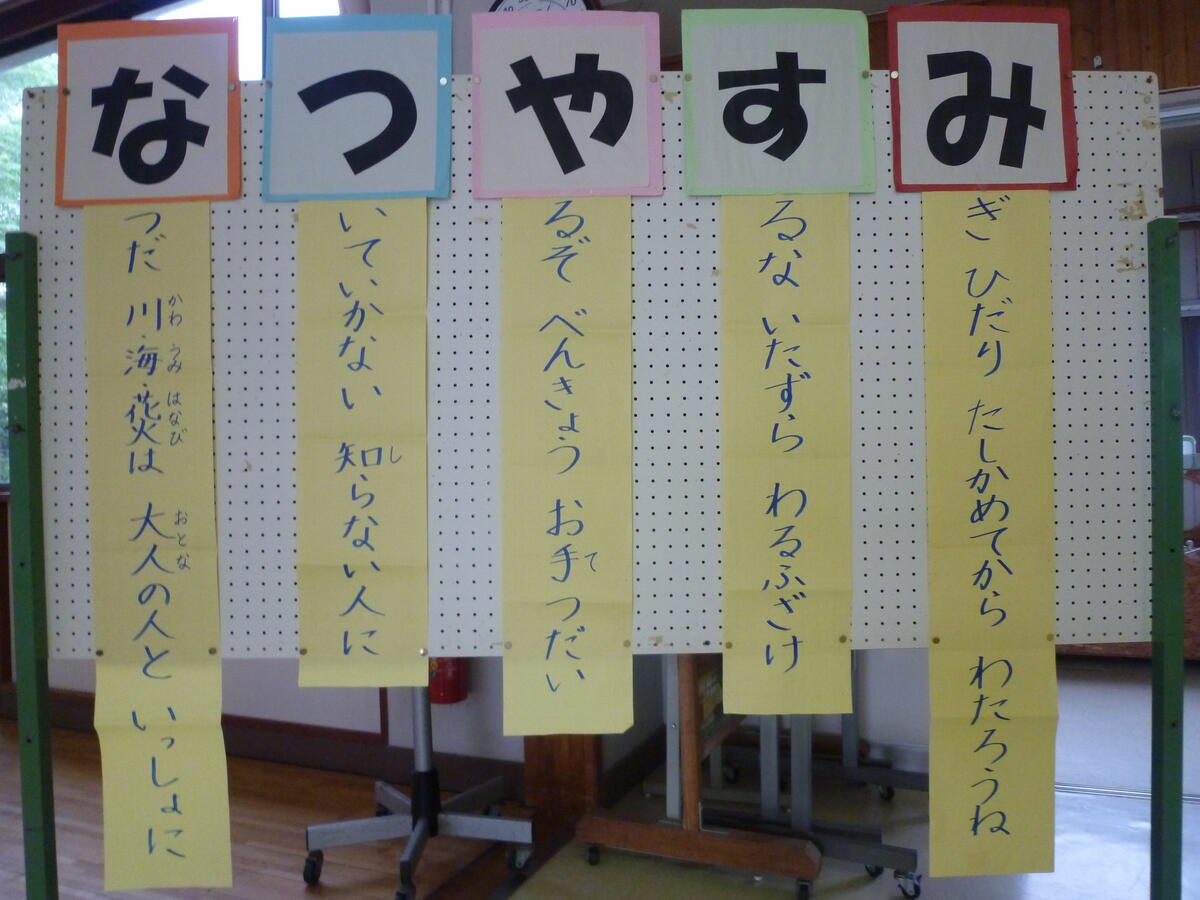 なつだ 川・海・花火は 大人の人と いっしょに
かわ うみ はなび おとな
ついていかない 知らない人に
し
やるぞ べんきょう お手つだい
て
するな いたずら わるふざけ
みぎ ひだり たしかめてから わたろうね